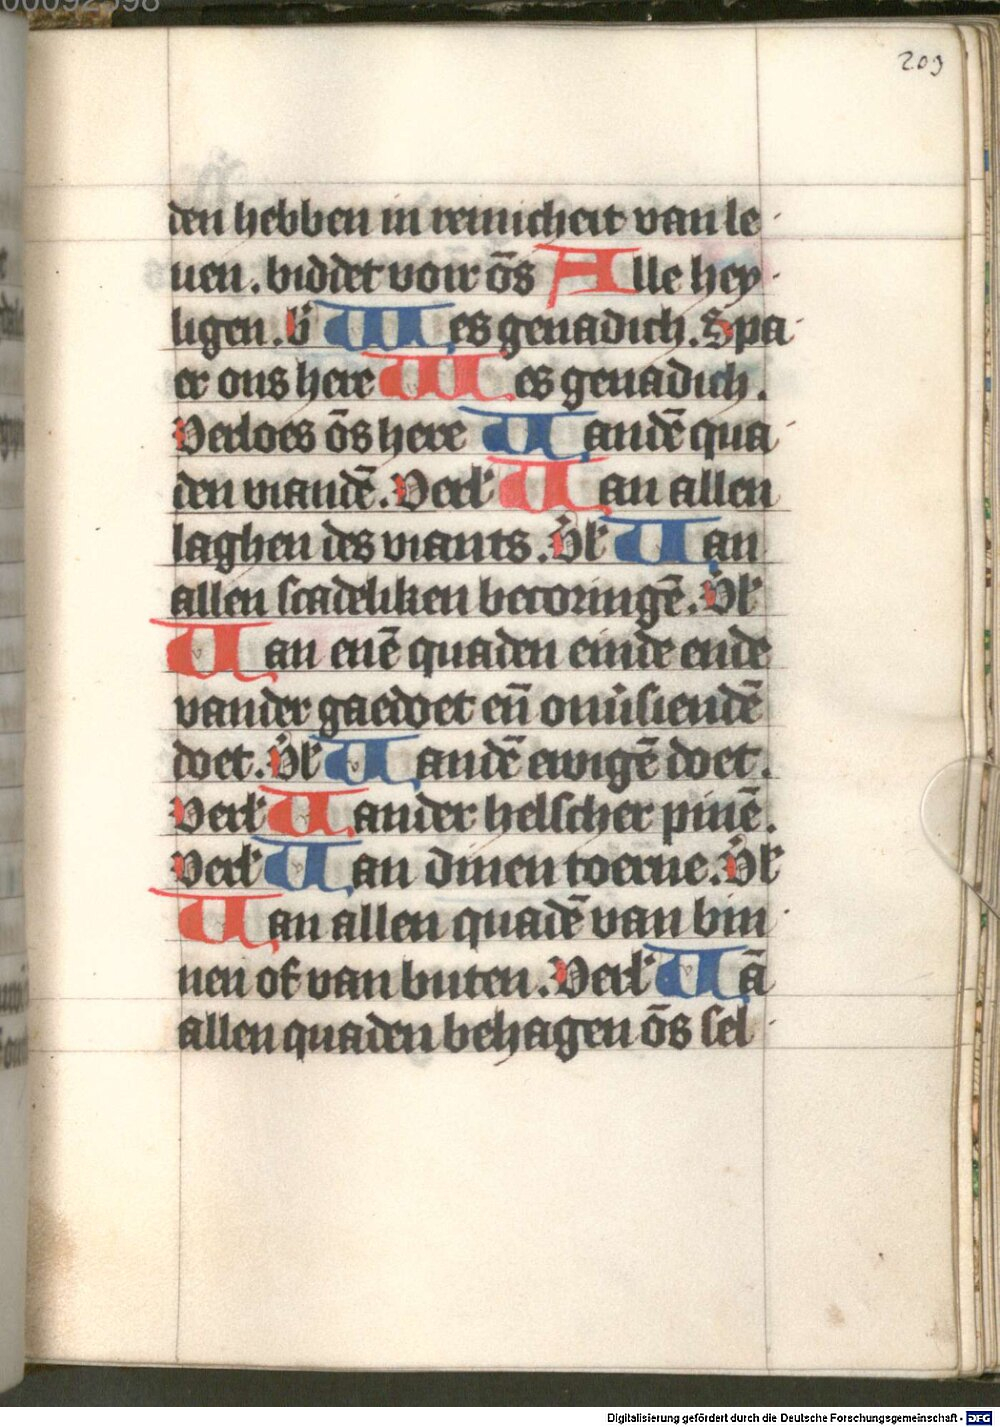 00092598
209
den hebben in reinicheit van le
uen. biddet voir ōs Alle hey
ligen. b̄ Wes genadich. Spa
er ons here Wes genadich.
Verloes ōs here Uandē qua
den viandē. Verl' Uan allen
laghen des viants. V̄l' Uan
allen scadeliken becoringē. V̄l'
Uan enē quaden einde ende
vander gaedoet eñ onuͦsiendē
doet. V̄l' Uandē ewigē doet.
Verl' Uander helscher pinē.
Verl' Uan dinen toerne. V̄l'
Uan allen quadē van bin
nen of van buten. Verl' Uā
allen quaden behagen ōs sel
Digitalisierung gefördert durch die Deutsche Forschungsgemeinschaft - DFG